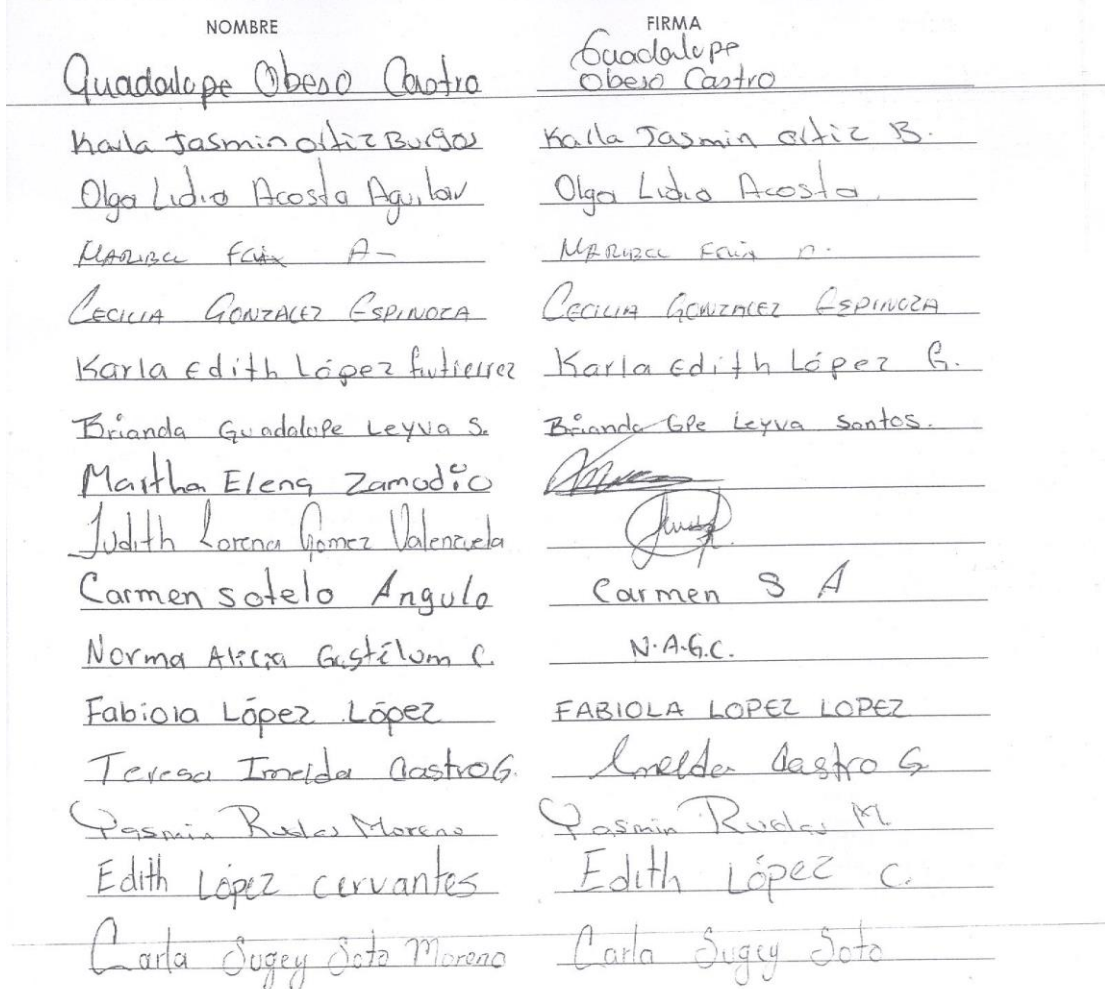 NOMBRE FIRMA
Guadalupe Obeso Castro Guadalupe
Obeso Castro
Karla Jasmin Ortiz Burgos Karla Jasmin Ortiz B.
Olga Lidia Acosta Aguilar Olga Lidia Acosta
MARIBEL FELIX A- MARIBEL FELIX
CECILIA GONZALEZ ESPINOZA CECILIA GONZALEZ ESPINOZA
Karla Edith López Gutierrez Karla Edith López G.
Brianda Guadalupe Leyva S. Brianda GPe Leyva Santos.
Martha Elena Zamudio
Judith Lorena Gomez Valenzuela
Carmen Sotelo Angulo Carmen S A
Norma Alicia Gastélum C. N.A.G.C.
Fabiola López López FABIOLA LOPEZ LOPEZ
Teresa Imelda Castro G. Imelda Castro G
Yasmin Ruelas Moreno Yasmin Ruelas M.
Edith López Cervantes Edith López C.
Carla Sugey Soto Moreno Carla Sugey Soto